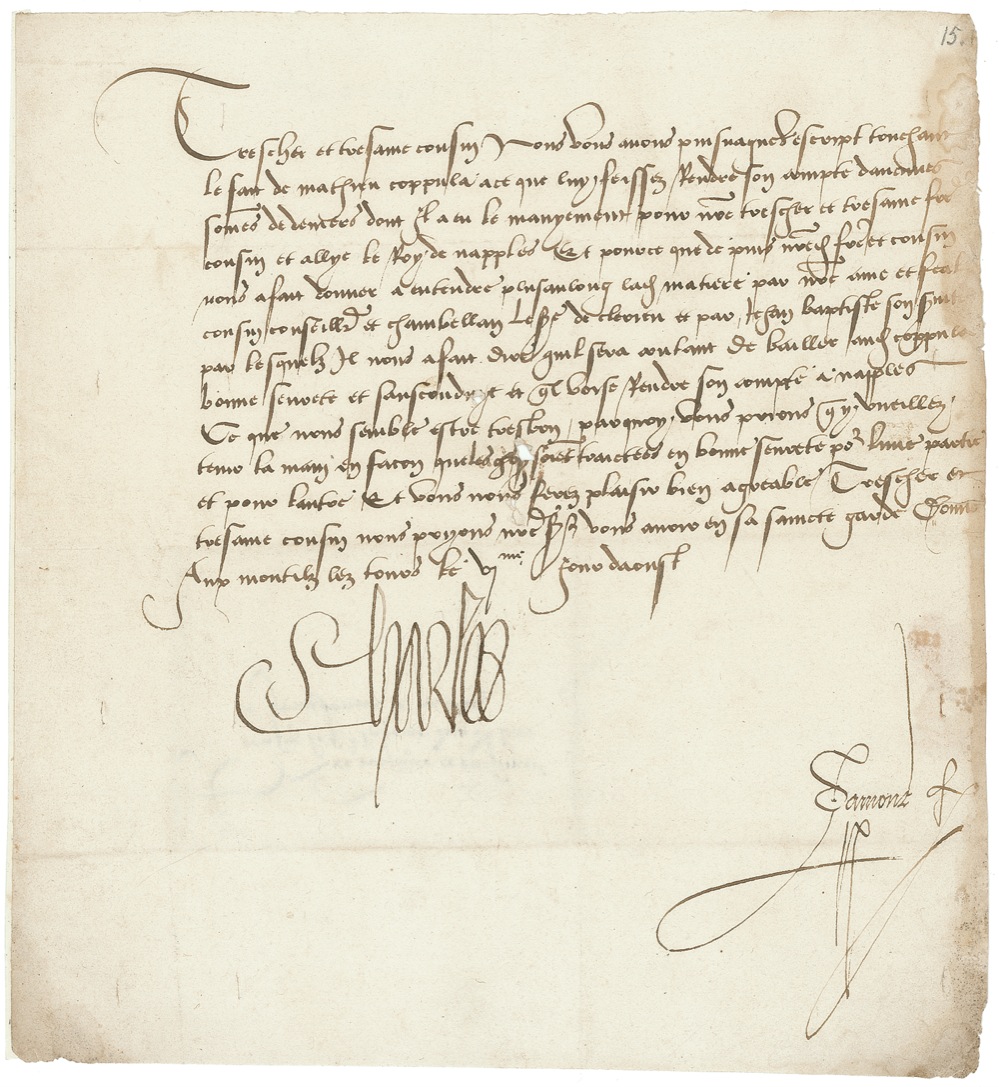 15.
Trescher et tresame cousin Nous vous auons puis naguer escript touchant
le fait de mathieu coppula ace que luy feissez Rendre son compte daucunes
somes de deniers dont Il a eu le manyement pour nre trescher et tresame fre
cousin et allye le Roy de napples Et pource que de puis nred frere et cousin
nous a fait donner a entendre plus au long lad matiere par nre ame et feal
cousin conseillr et chambellan le sr de clerieu et par Jehan baptiste son
par lesquelz Il nous a fait dire quil sera contant de bailler aud coppula
bonne seurete et saufconduyt et ql voise Rendre son compte a napples
Ce que nous semble estre tresbon parquoy vous prions q y vueillez
tenir la main en facon que les choses soient traictees en bonne seurete por lune partie
et pour lautre Et vous nous ferez plaisir bien agreable Trescher et
tresame cousin nous pryons nre sr vous auoir en sa saincte garde Donne
Aux montilz lez tours le vj me Jour daoust
Charles
Damont